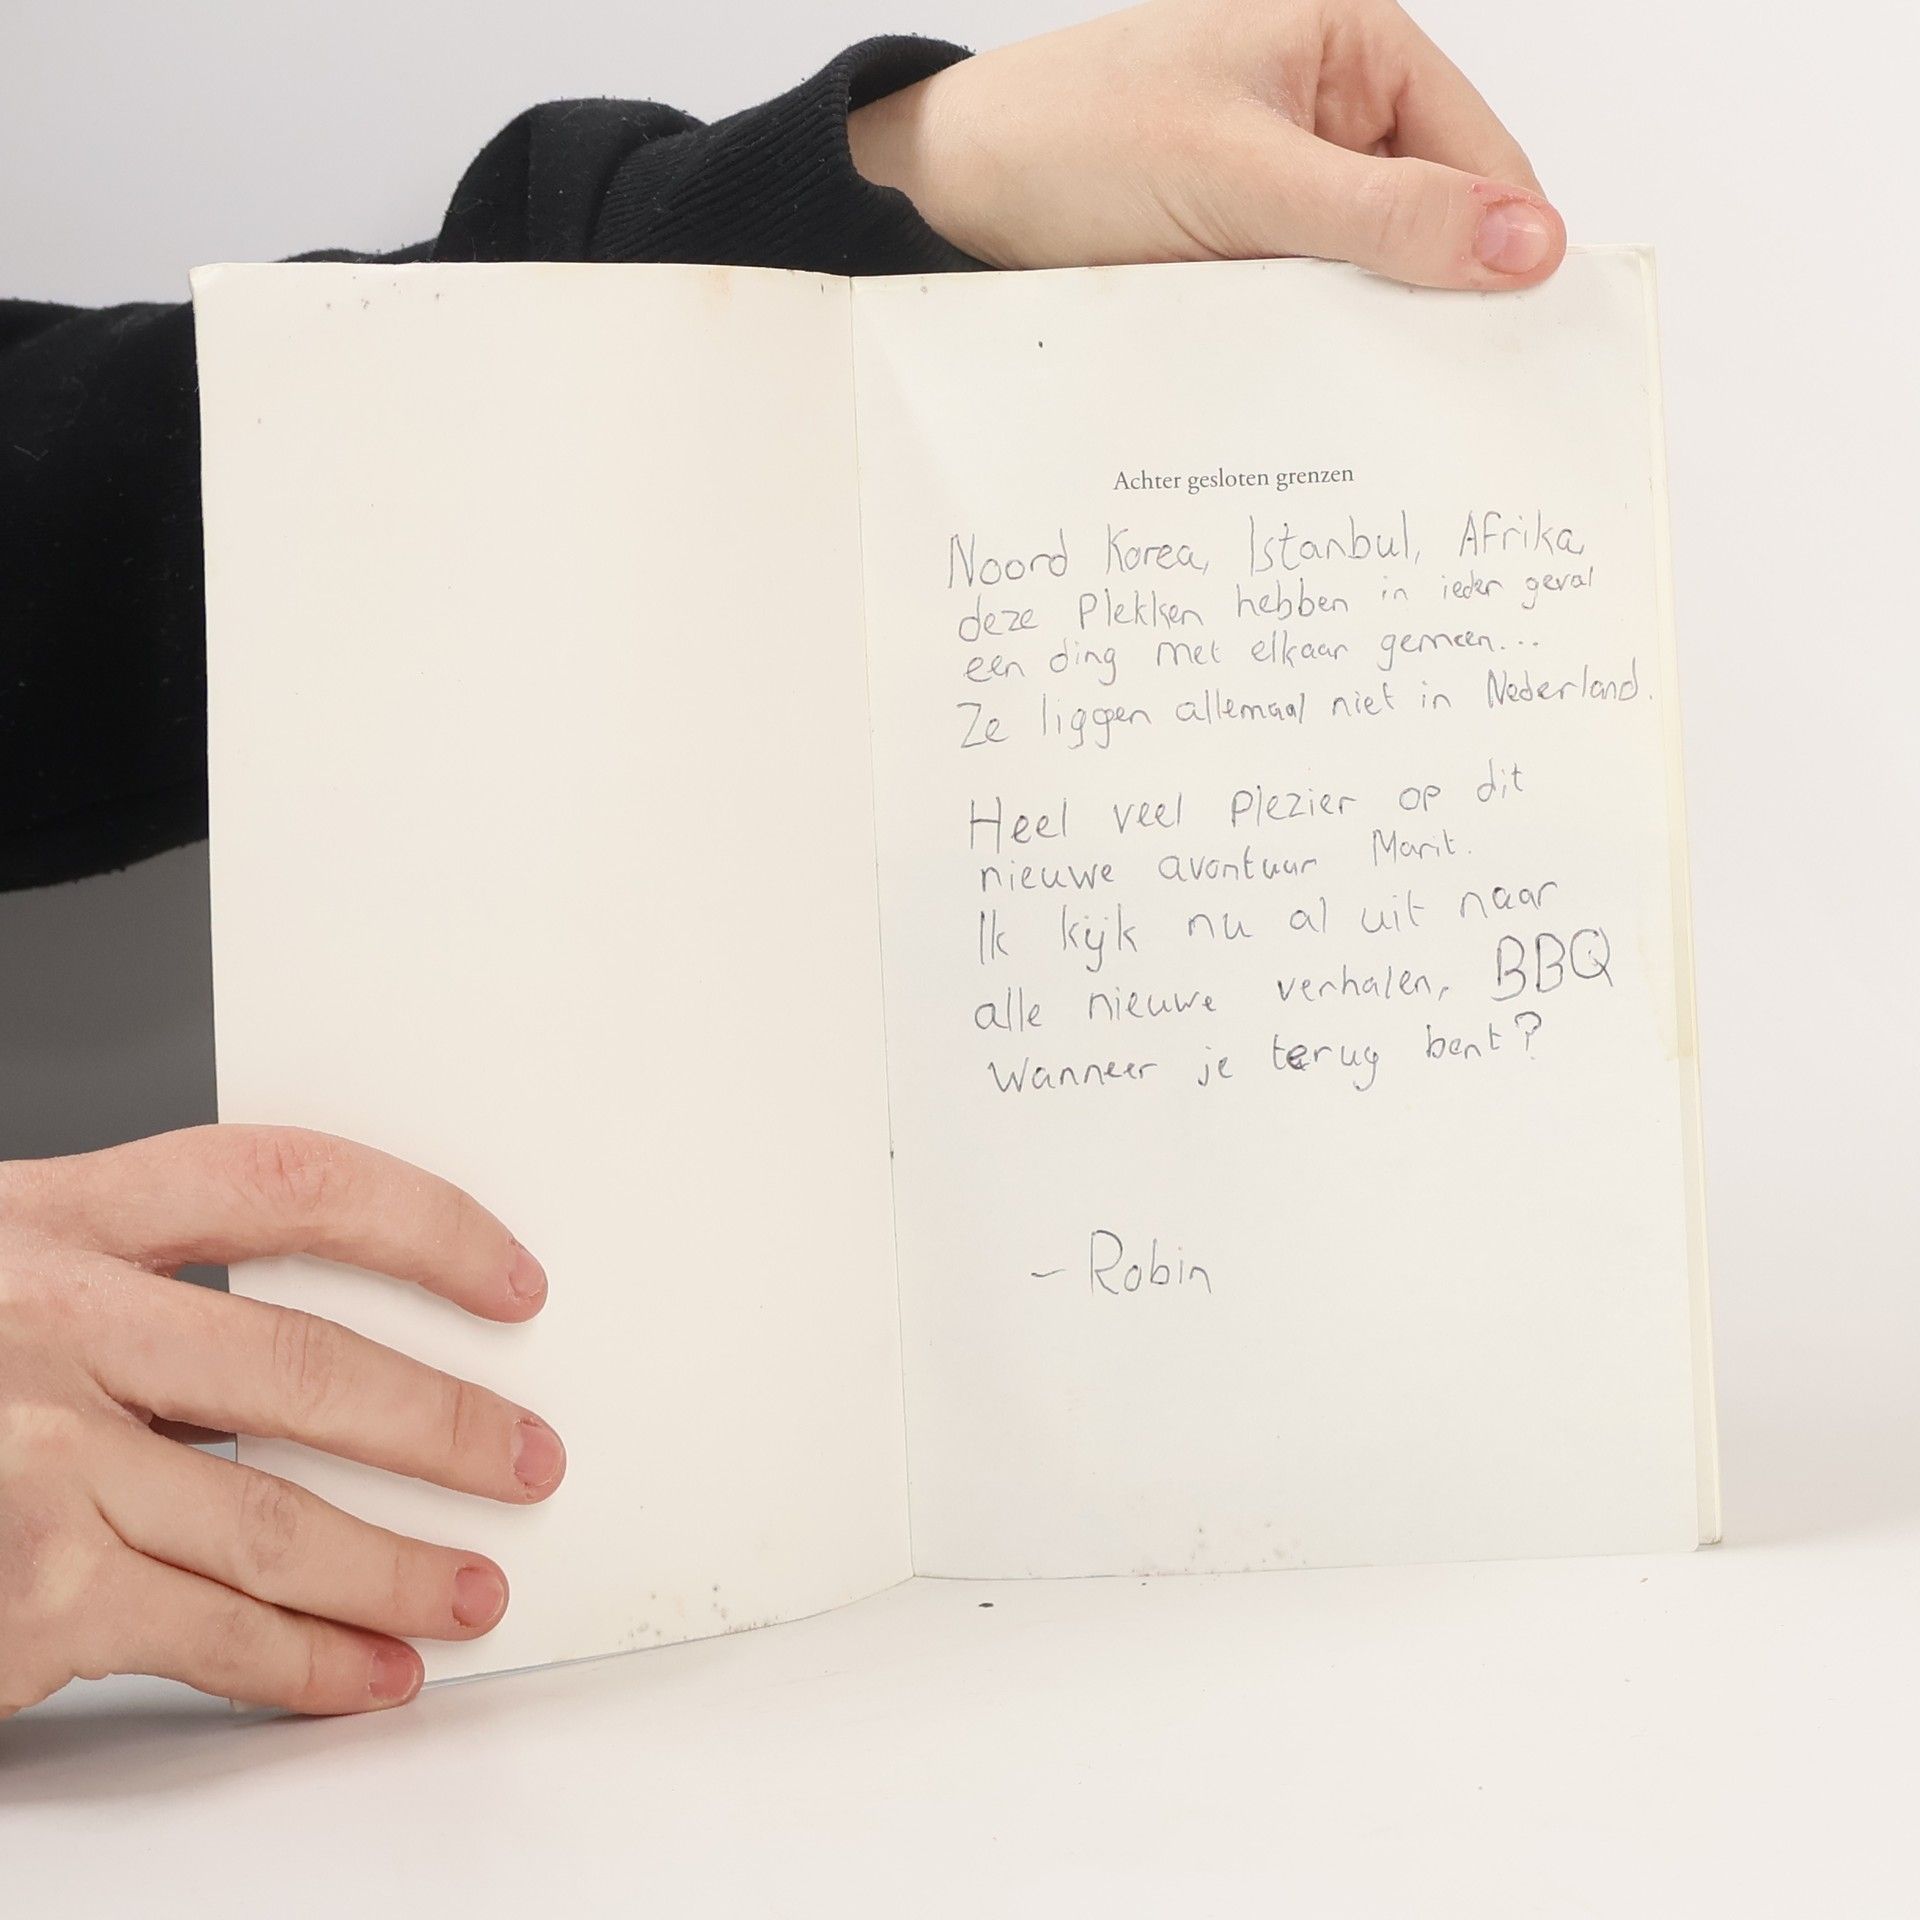 Achter gesloten grenzen
Noord Korea, Istanbul, Afrika,
deze Plekken hebben in ieder geval
een ding met elkaar gemeen...
Ze liggen allemaal niet in Nederland.
Heel veel Plezier op dit
nieuwe avontuur Marit.
Ik kijk nu al uit naar
alle nieuwe verhalen, BBQ
Wanneer je terug bent?
– Robin